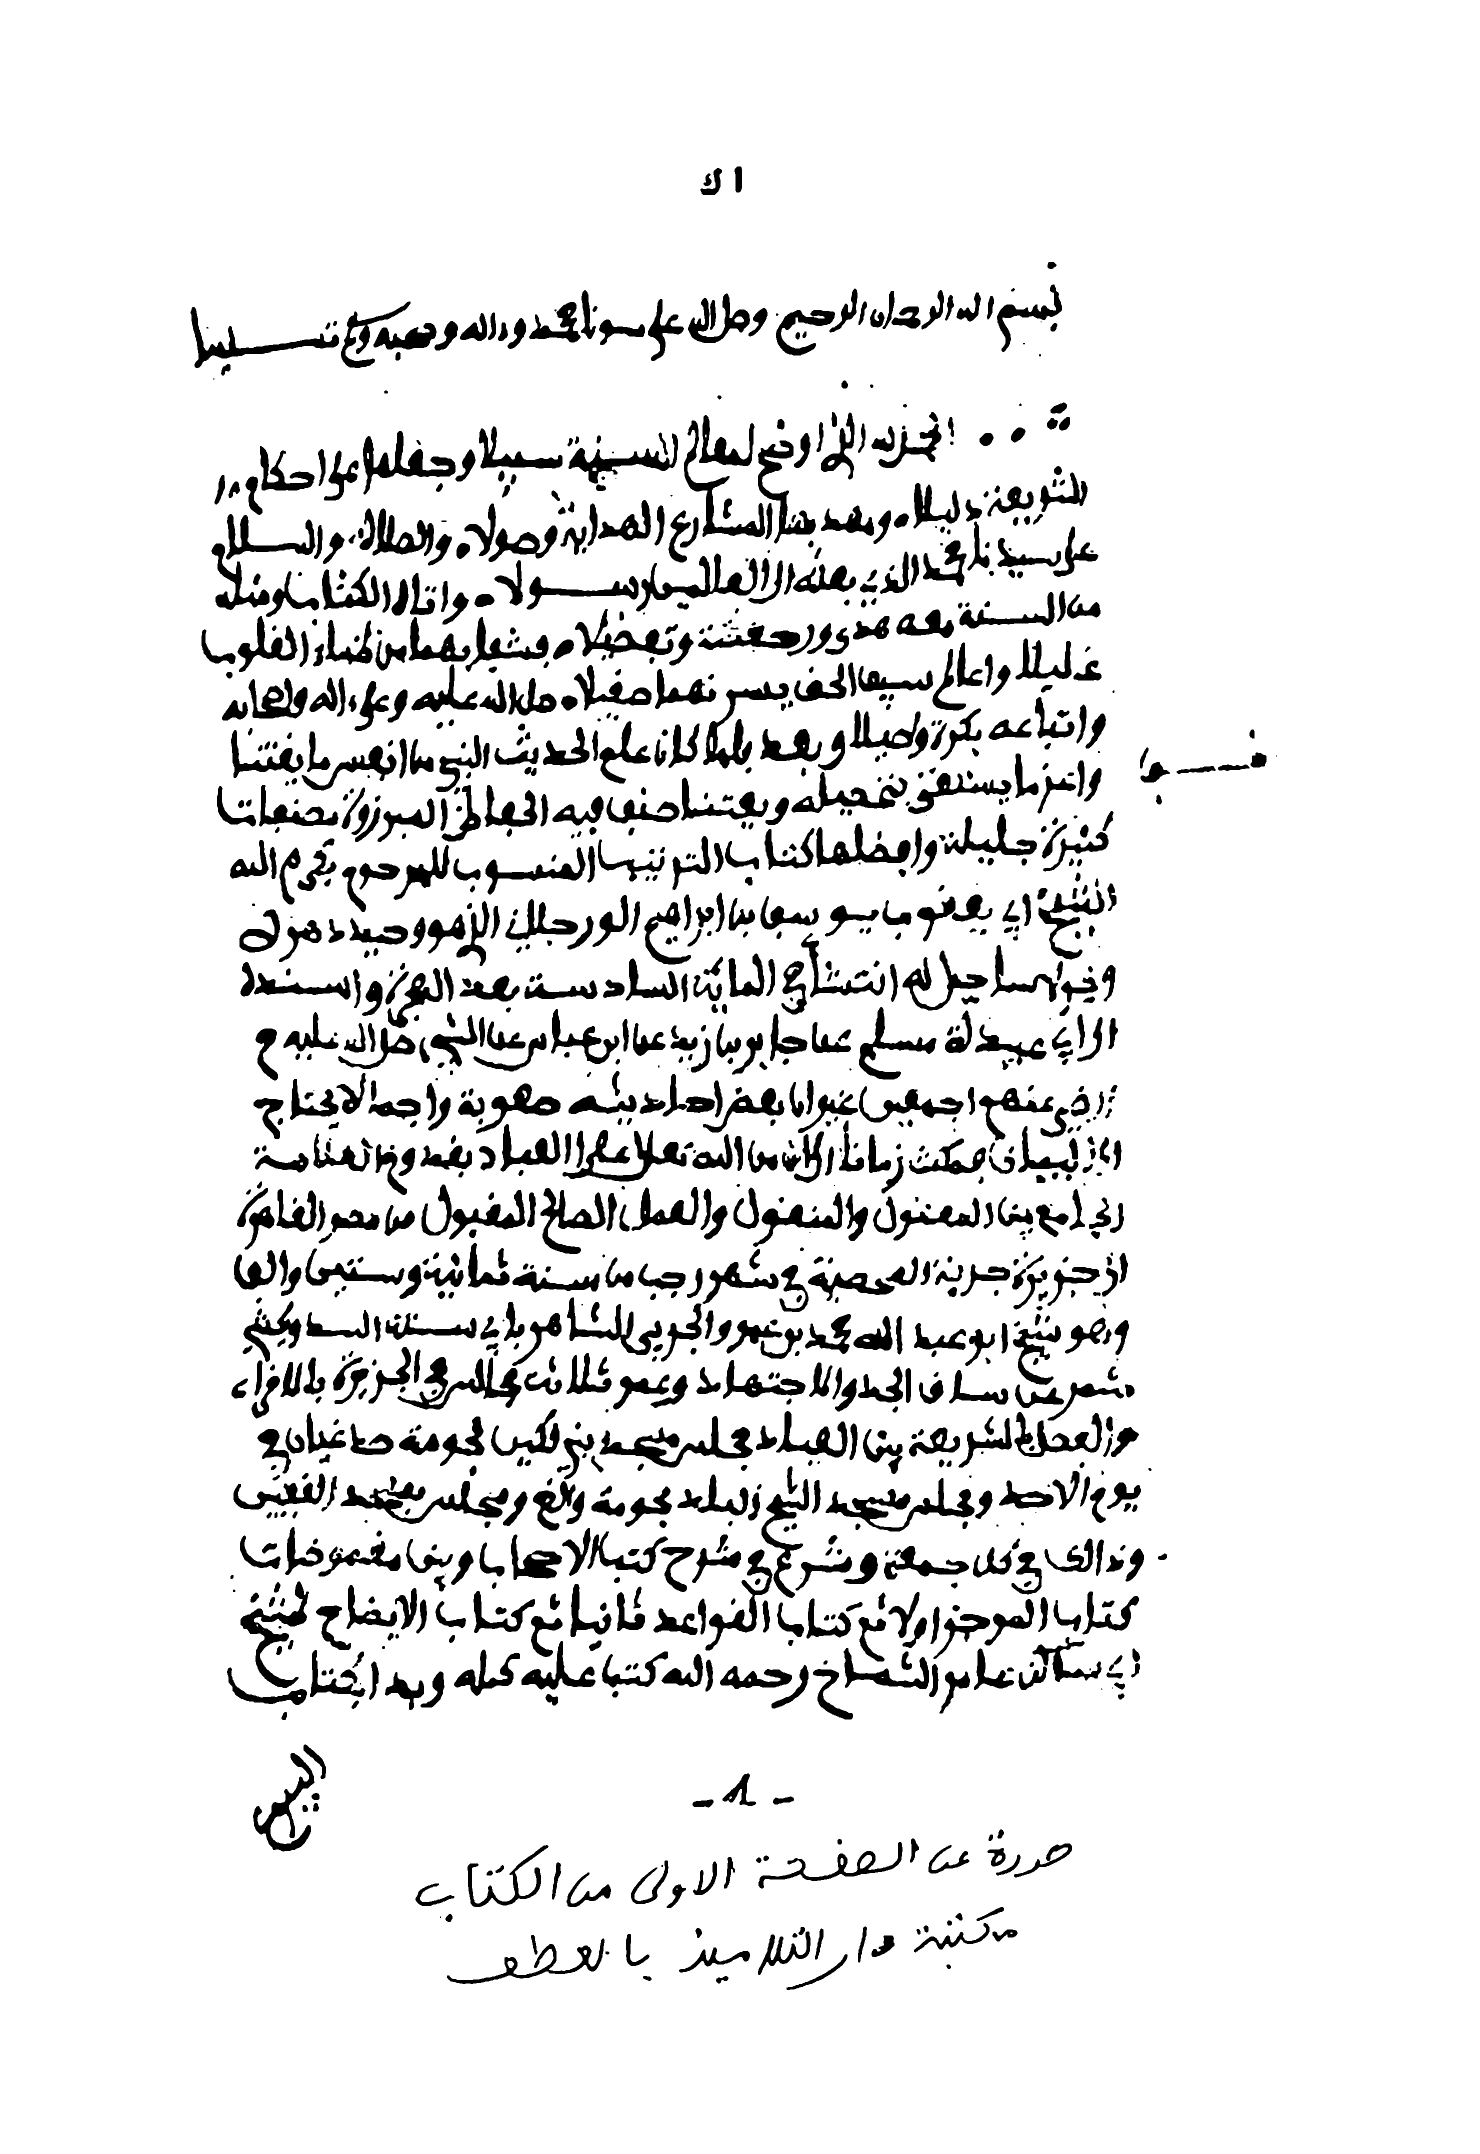 ا ك
بسم الله الرحمان الرحيم وصلى الله على سيدنا محمد وءاله وصحبه وسلم تسليما
الحمد لله الذي اوضح لمعالم السنية سبيلا وجعلها على احكام
الشريعة دليلا ومهد بها المشارع الهداية وصولا والصلاة والسلام
على سيدنا محمد الذي بعثه الى العالمين رسولا واتاه الكتاب ومثله
من السنة معه هدى ورحمة وتفضيلا فشفا بهما من ظماء القلوب
غليلا واعالم سيف الحق بسرنهما صقيلا صلى الله عليه وعلى ءاله واصحابه
واتباعه بكرة واصيلا وبعد فلما كان علم الحديث النبي من انفس ما يقتنا
واعز ما يستغنى بتحصيله ويعتنا صنف فيه الحفاظ المبرزون مصنفات
كثيرة جليلة وافضلها كتاب الترتيب المنسوب للمرحوم بكرم الله
الشيخ ابي يعقوب يوسف بن ابراهيم الورجلاني الذي هو وحيد دهره
انتشا في المائة السادسة بعد الهجرة واسنده
الى ابي عبيدة مسلم عن جابر بن زيد عن ابن عباس عن النبي صلى الله عليه و
رضي عنهم اجمعين غير ان بعض احاديثه صعوبة واجمالا يحتاج
الى البيان فمكث زمانا الى ان من الله تعالى على العباد بقدوم العلامة
الجامع بين المعقول والمنقول والعمل الصالح المقبول من مصر القاهرة
الى جزيرة جربة المحصنة في شهر رجب من سنة ثمانية وستين والف
وهو شيخ ابو عبد الله محمد بن عمرو الجربي الشاهر بابي ستة السدويكشي
شمر عن ساق الجد والاجتهاد وعمر ثلاث مجالس في الجزيرة بالاقراء
والعمل بالشريعة بين العباد مجلس مسجد بني لاكين بحومة صدغيان في
يوم الاحد ومجلس مسجد الشيخ زالبلد بحومة والغ ومجلس مسجد الفقيس
وذالك في كل جمعة وشرع في شرح كتب الاصحاب وبين مغموضات
كتاب الموجز اولا ثم كتاب القواعد ثانيا ثم كتاب الايضاح للشيخ
ابي ساكن عامر الشماخ رحمه الله كتب عليه كله وبعد الكتاب
البيوع
- ١ -
صورة عن الصفحة الاولى من الكتاب
مكتبة دار التلاميذ بالعطف